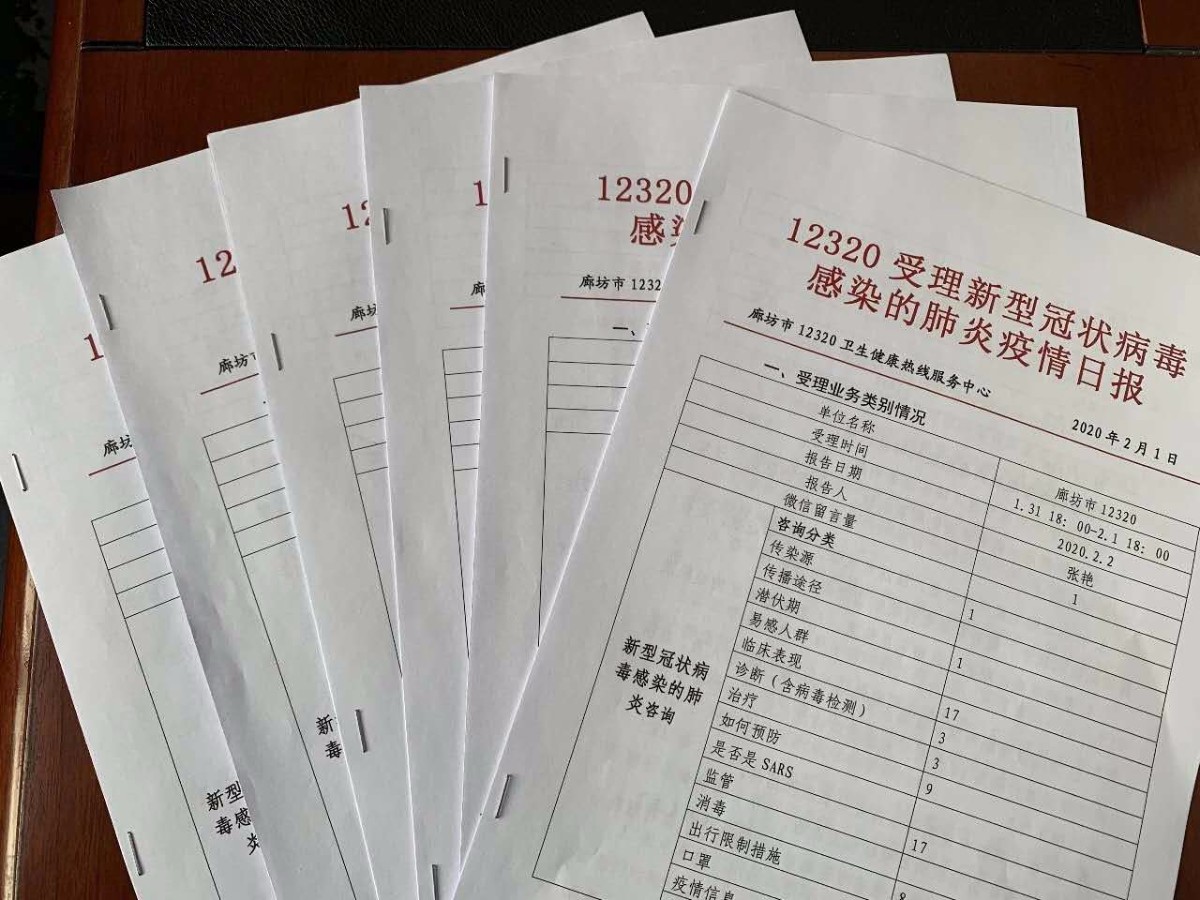 12320 受理新型冠状病毒
感染的肺炎疫情日报
廊坊市 12320 卫生健康热线服务中心 2020 年 2 月 1 日
一、受理业务类别情况
单位名称 廊坊市 12320
受理时间 1.31 18: 00-2.1 18: 00
报告日期 2020.2.2
报告人 张艳
微信留言量 1
新型冠状病
毒感染的肺
炎咨询
咨询分类
传染源 1
传播途径
潜伏期 1
易感人群
临床表现 17
诊断（含病毒检测） 3
治疗 3
如何预防 9
是否是 SARS
监管 17
消毒
出行限制措施 8
口罩
疫情信息
12320
感
廊坊市 1232
一、
1
廊
12
廊坊
12
廊坊
新
毒
1
廊坊
新型
毒感
炎